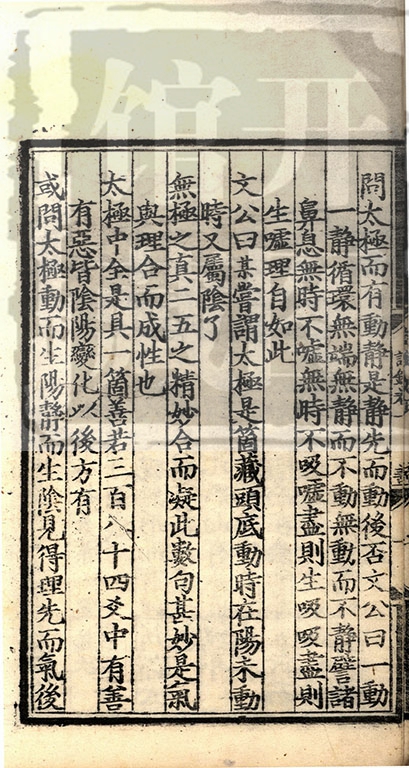 問太極而有動靜是靜先而動後否文公曰一動
一靜循環無端無靜而不動無動而不靜譬諸
鼻息無時不噓無時不吸噓盡則生吸吸盡則
生噓理自如此
文公曰某嘗謂太極是箇藏頭底動時在陽未動
時又屬陰了
無極之真二五之精妙合而凝此數句甚妙是氣
與理合而成性也
太極中全是具一箇善若三百八十四爻中有善
有惡皆陰陽變化以後方有
或問太極動而生陽靜而生陰見得理先而氣後
開館